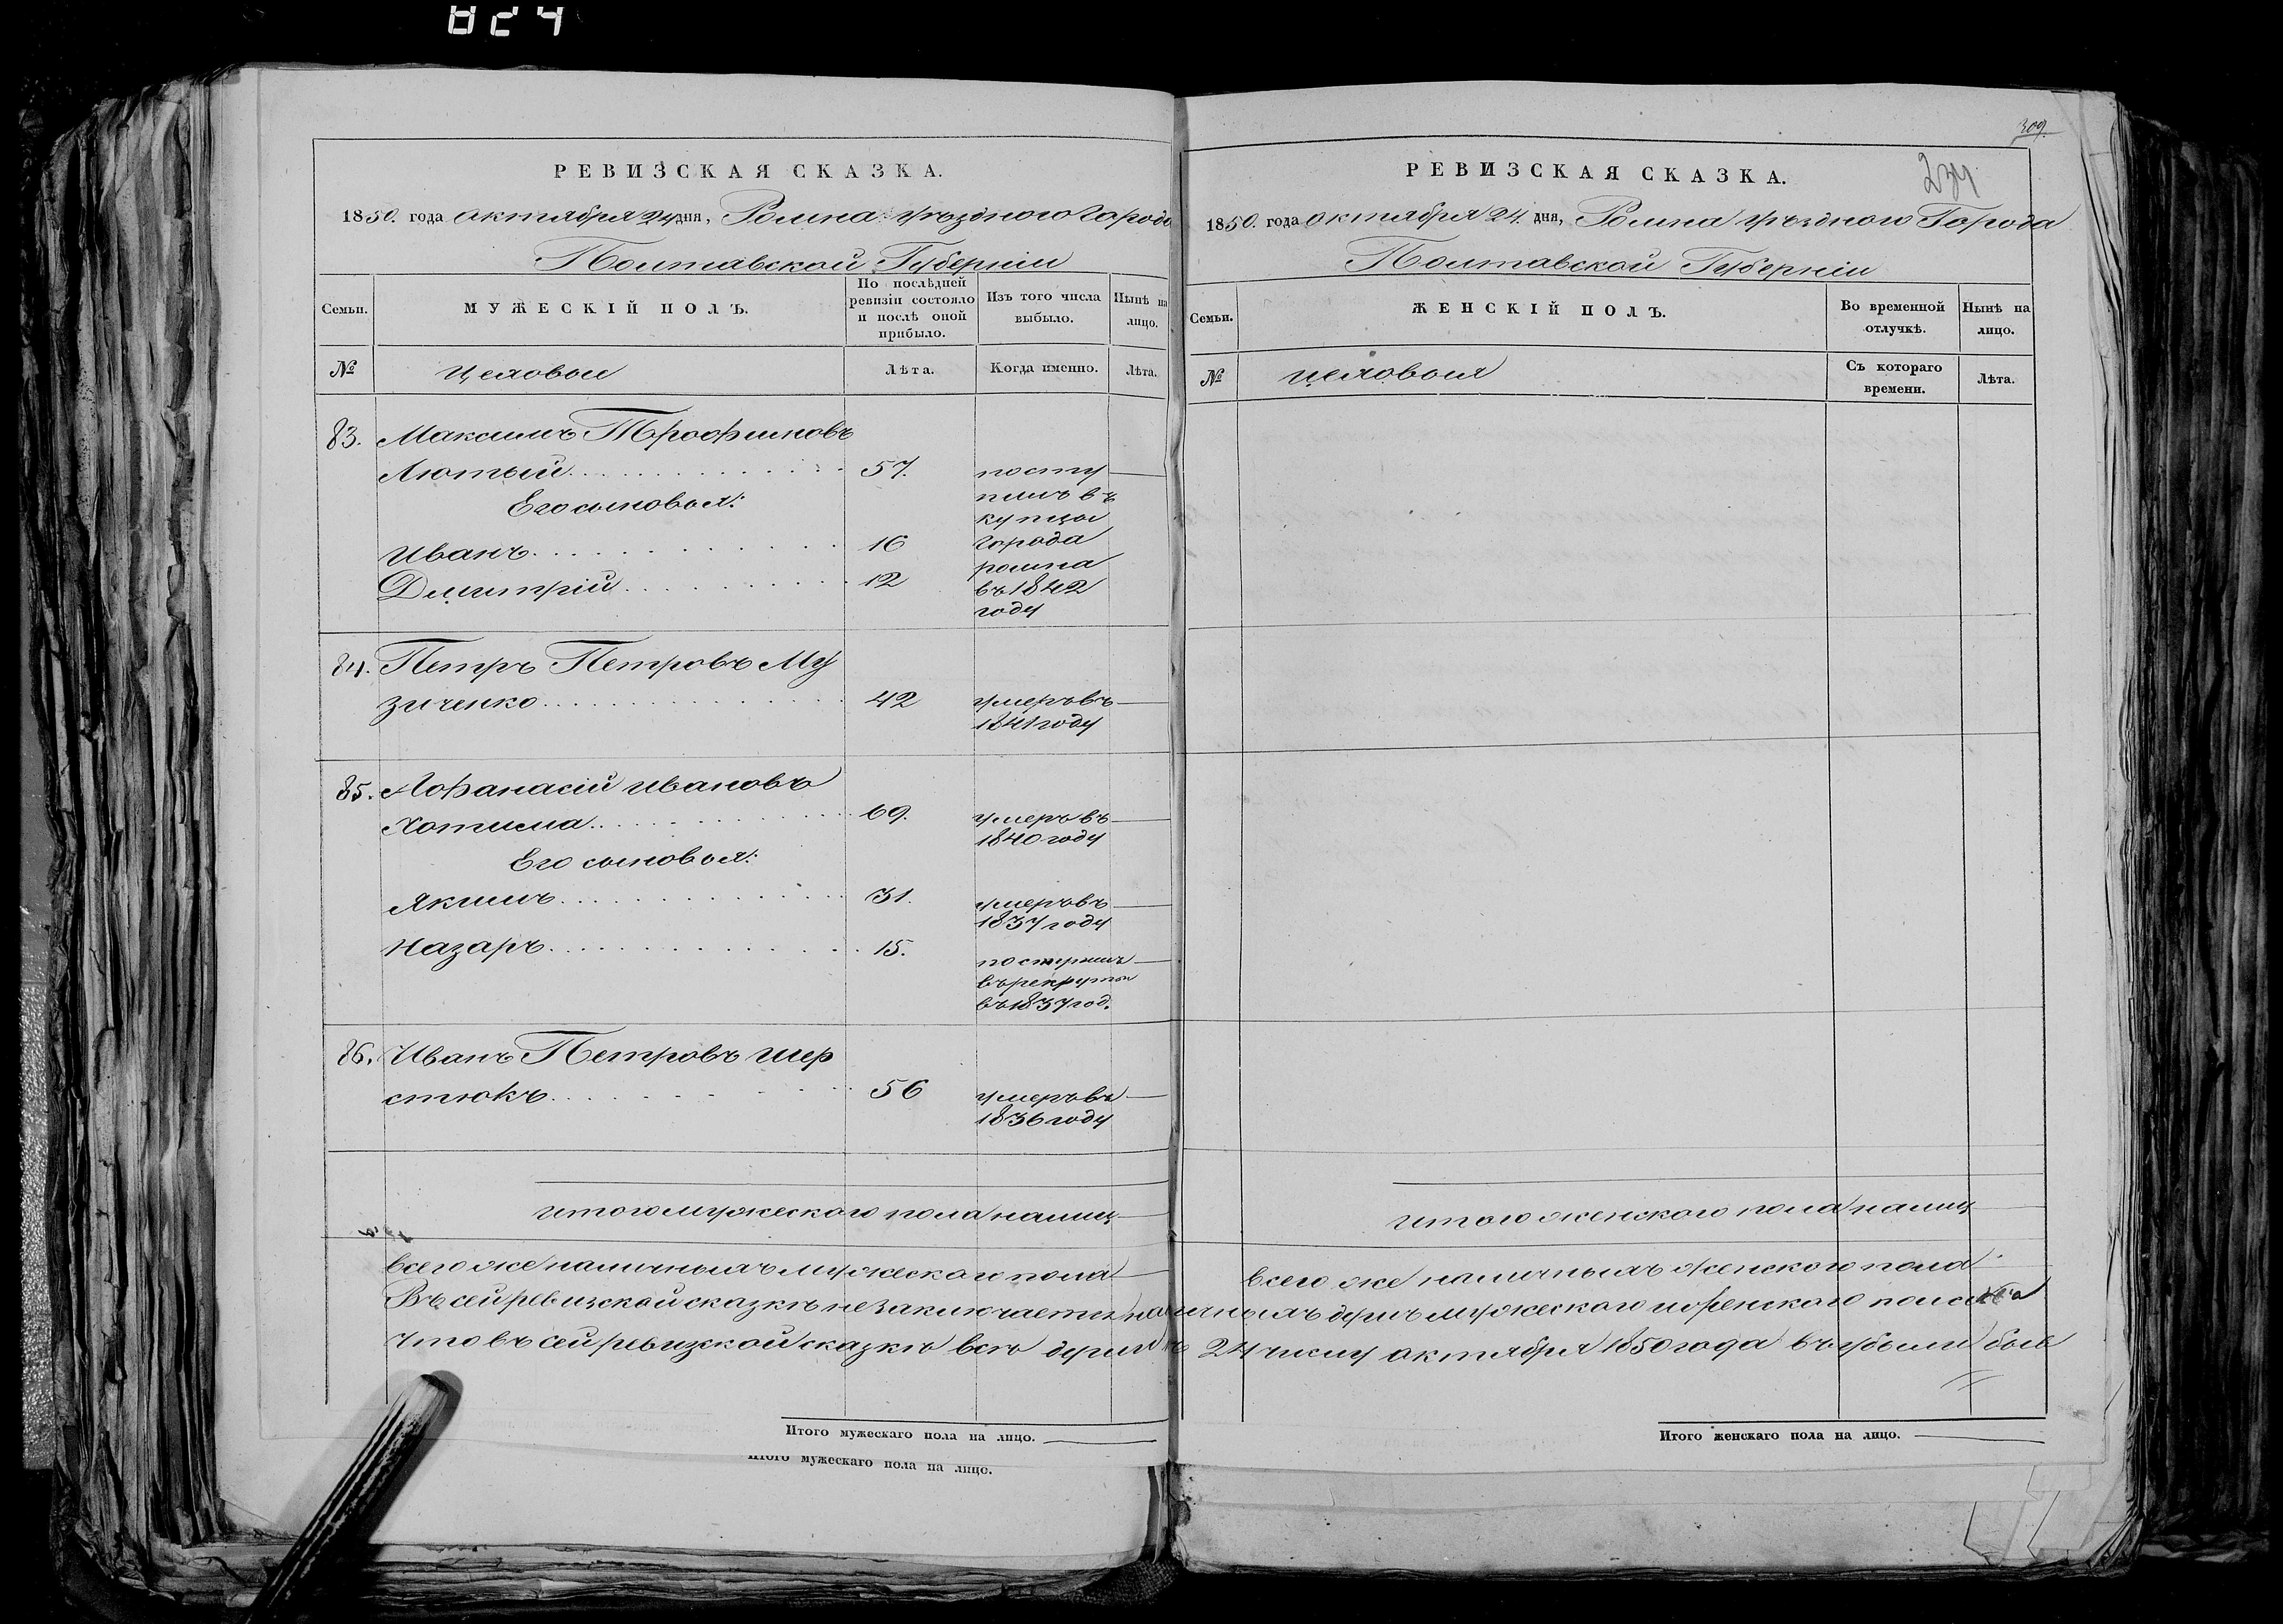 824
РЕВИЗСКАЯ СКАЗКА.
1850. года октября 24 дня, Ромна уѣзднаго Города
Полтавской Губерніи
Семьи.
МУЖЕСКІЙ ПОЛЪ.
По послѣдней ревизіи состояло и послѣ оной прибыло.
Изъ того числа выбыло.
Нынѣ на лицо.
№
Цеховыи
Лѣта.
Когда именно.
Лѣта.
83. Максимъ Трофимовъ
Лютый 57. посту
Его сыновья: пилъ въ
купцы
Иванъ 16 города
ромна
Дмитрій 12 въ 1842
году
84. Петръ Петровъ Му
зиченко 42 умеръ въ
1841 году
85. Афанасій Ивановъ
Хотима 69. умеръ въ
1840 году
Его сыновья:
Якимъ 31. умеръ въ
1837 году
Назаръ 15. поступилъ
въ рекруты
въ 1837 год.
86. Иванъ Петровъ Шер
стюкъ 56 умеръ въ
1836 году
итого мужескаго пола налиц
всего же наличныхъ мужескаго пола
Въ сей ревизской сказкѣ не заключается наличныхъ душъ мужескаго и женскаго пола
что въ сей ревизкой сказкѣ всѣ души къ 24 числу октября 1850 года въ убыли
Итого мужескаго пола на лицо.
Итого мужескаго пола на лицо.
309
234
РЕВИЗСКАЯ СКАЗКА.
1850. года октября 24. дня, Ромна уѣзднаго Города
Полтавской Губерніи
Семьи.
ЖЕНСКІЙ ПОЛЪ.
Во временной отлучкѣ.
Нынѣ на лицо.
№
Цеховыя
Съ котораго времени.
Лѣта.
итого женскаго пола налиц
всего же наличныхъ женскаго пола
Итого женскаго пола на лицо.